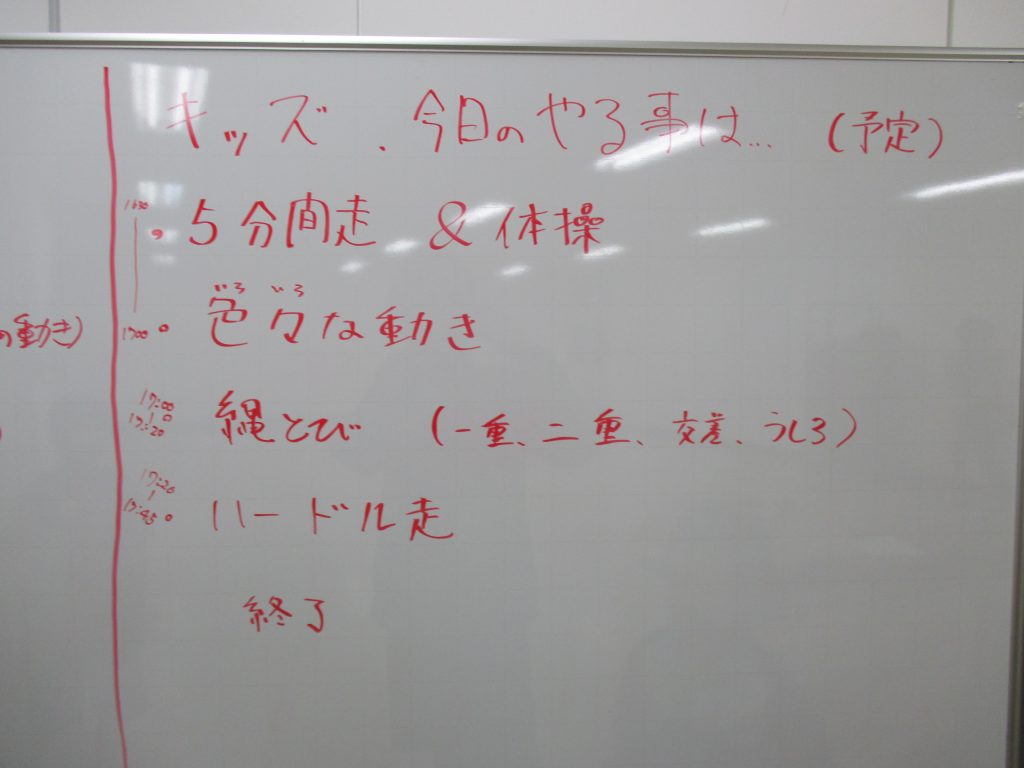 キッズ、今日のやる事は… (予定)
1630
・5分間走 & 体操
いろ いろ
色々な動き
1700
の動き)
17:00
17:20
・縄とび (一重、二重、交差、うしろ)
17:20
17:45
・ハードル走
終了